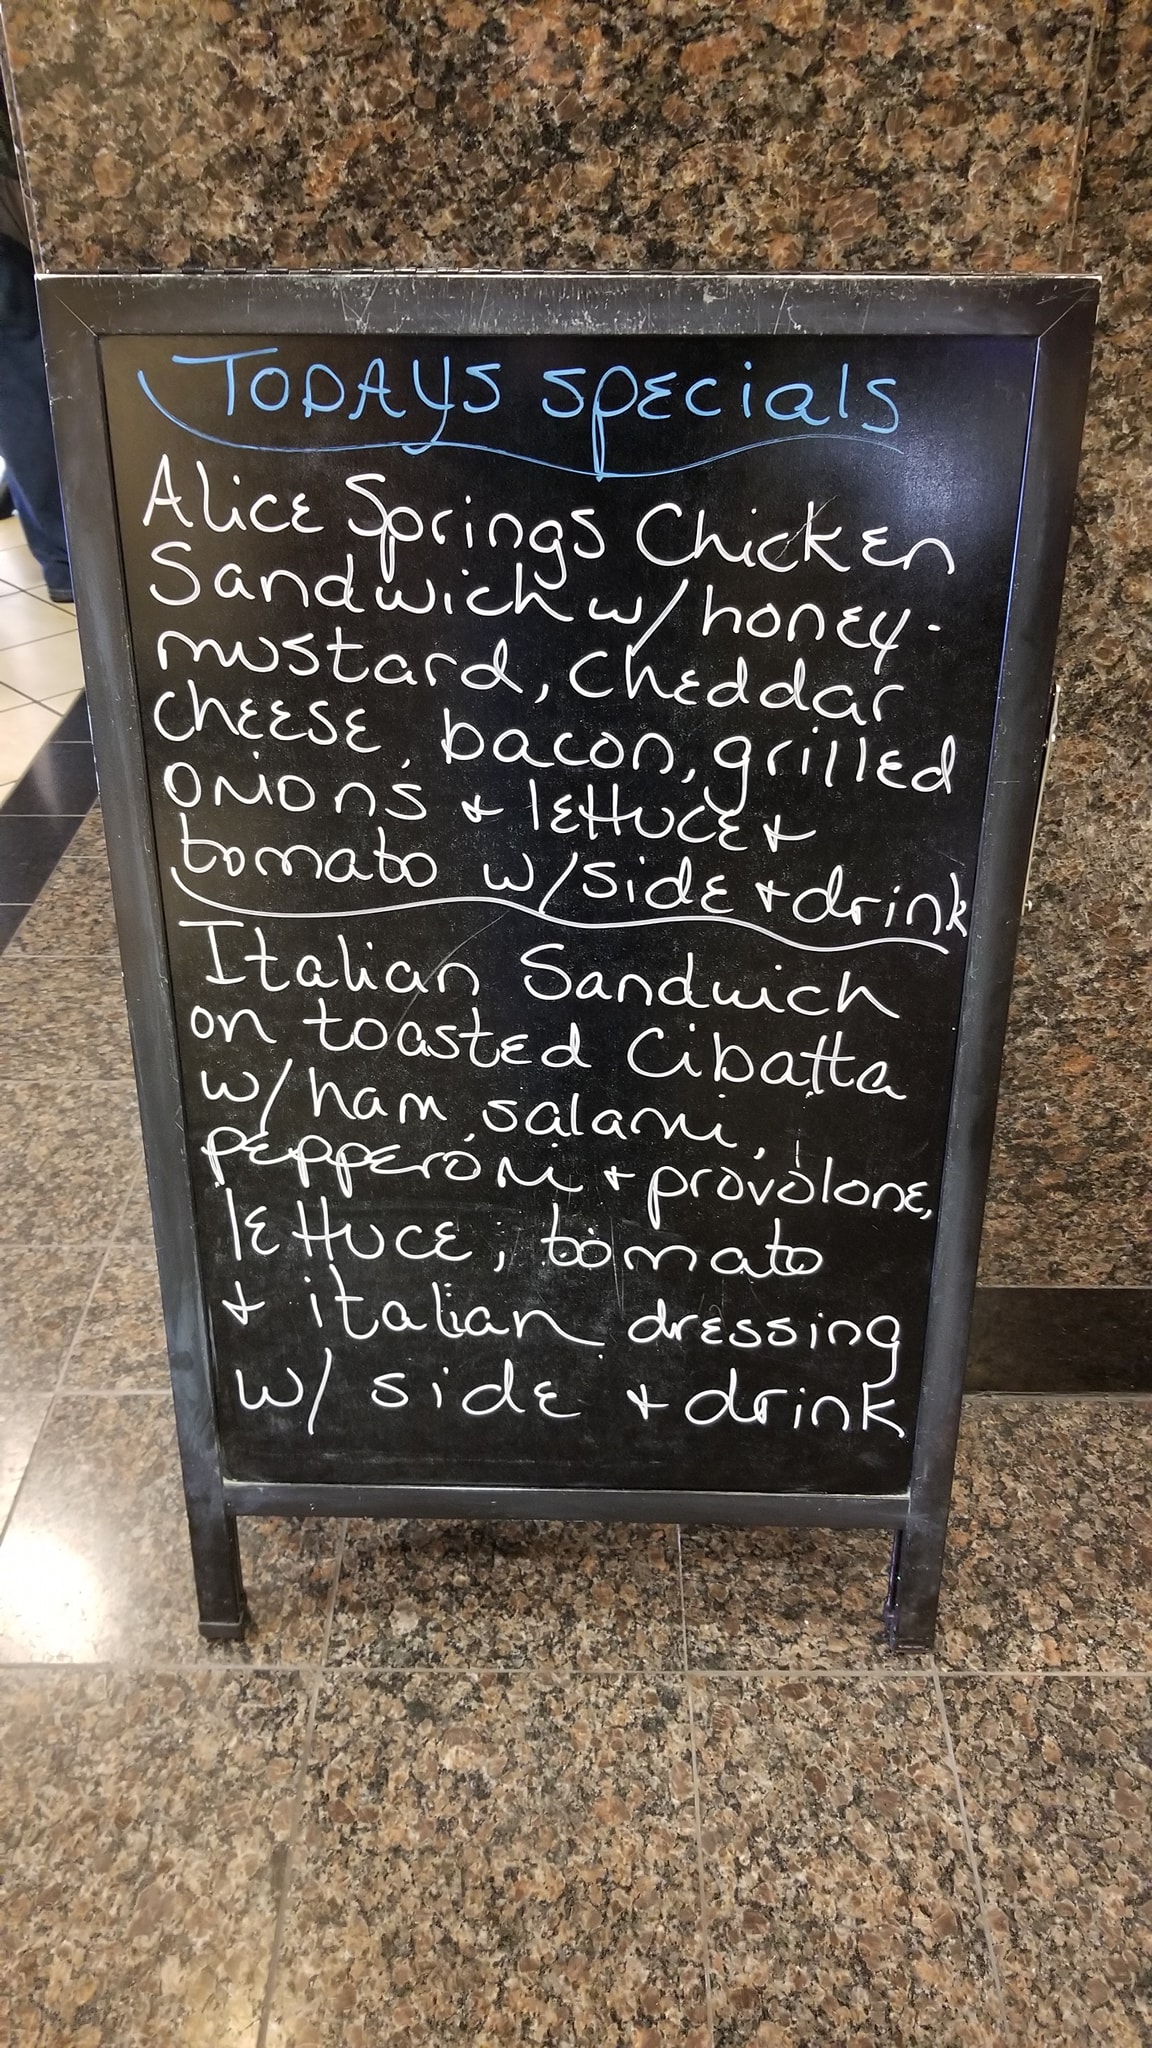 TODAYS specials
Alice Springs Chicken
Sandwich w/honey-
mustard, Cheddar
cheese, bacon, grilled
onions + lettuce +
tomato w/side + drink
Italian Sandwich
on toasted Cibatta
w/ham, salami,
pepperoni + provolone,
lettuce, tomato
+ italian dressing
w/ side + drink